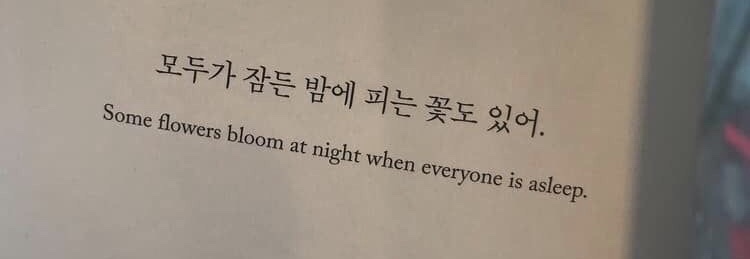 모두가 잠든 밤에 피는 꽃도 있어.
Some flowers bloom at night when everyone is asleep.